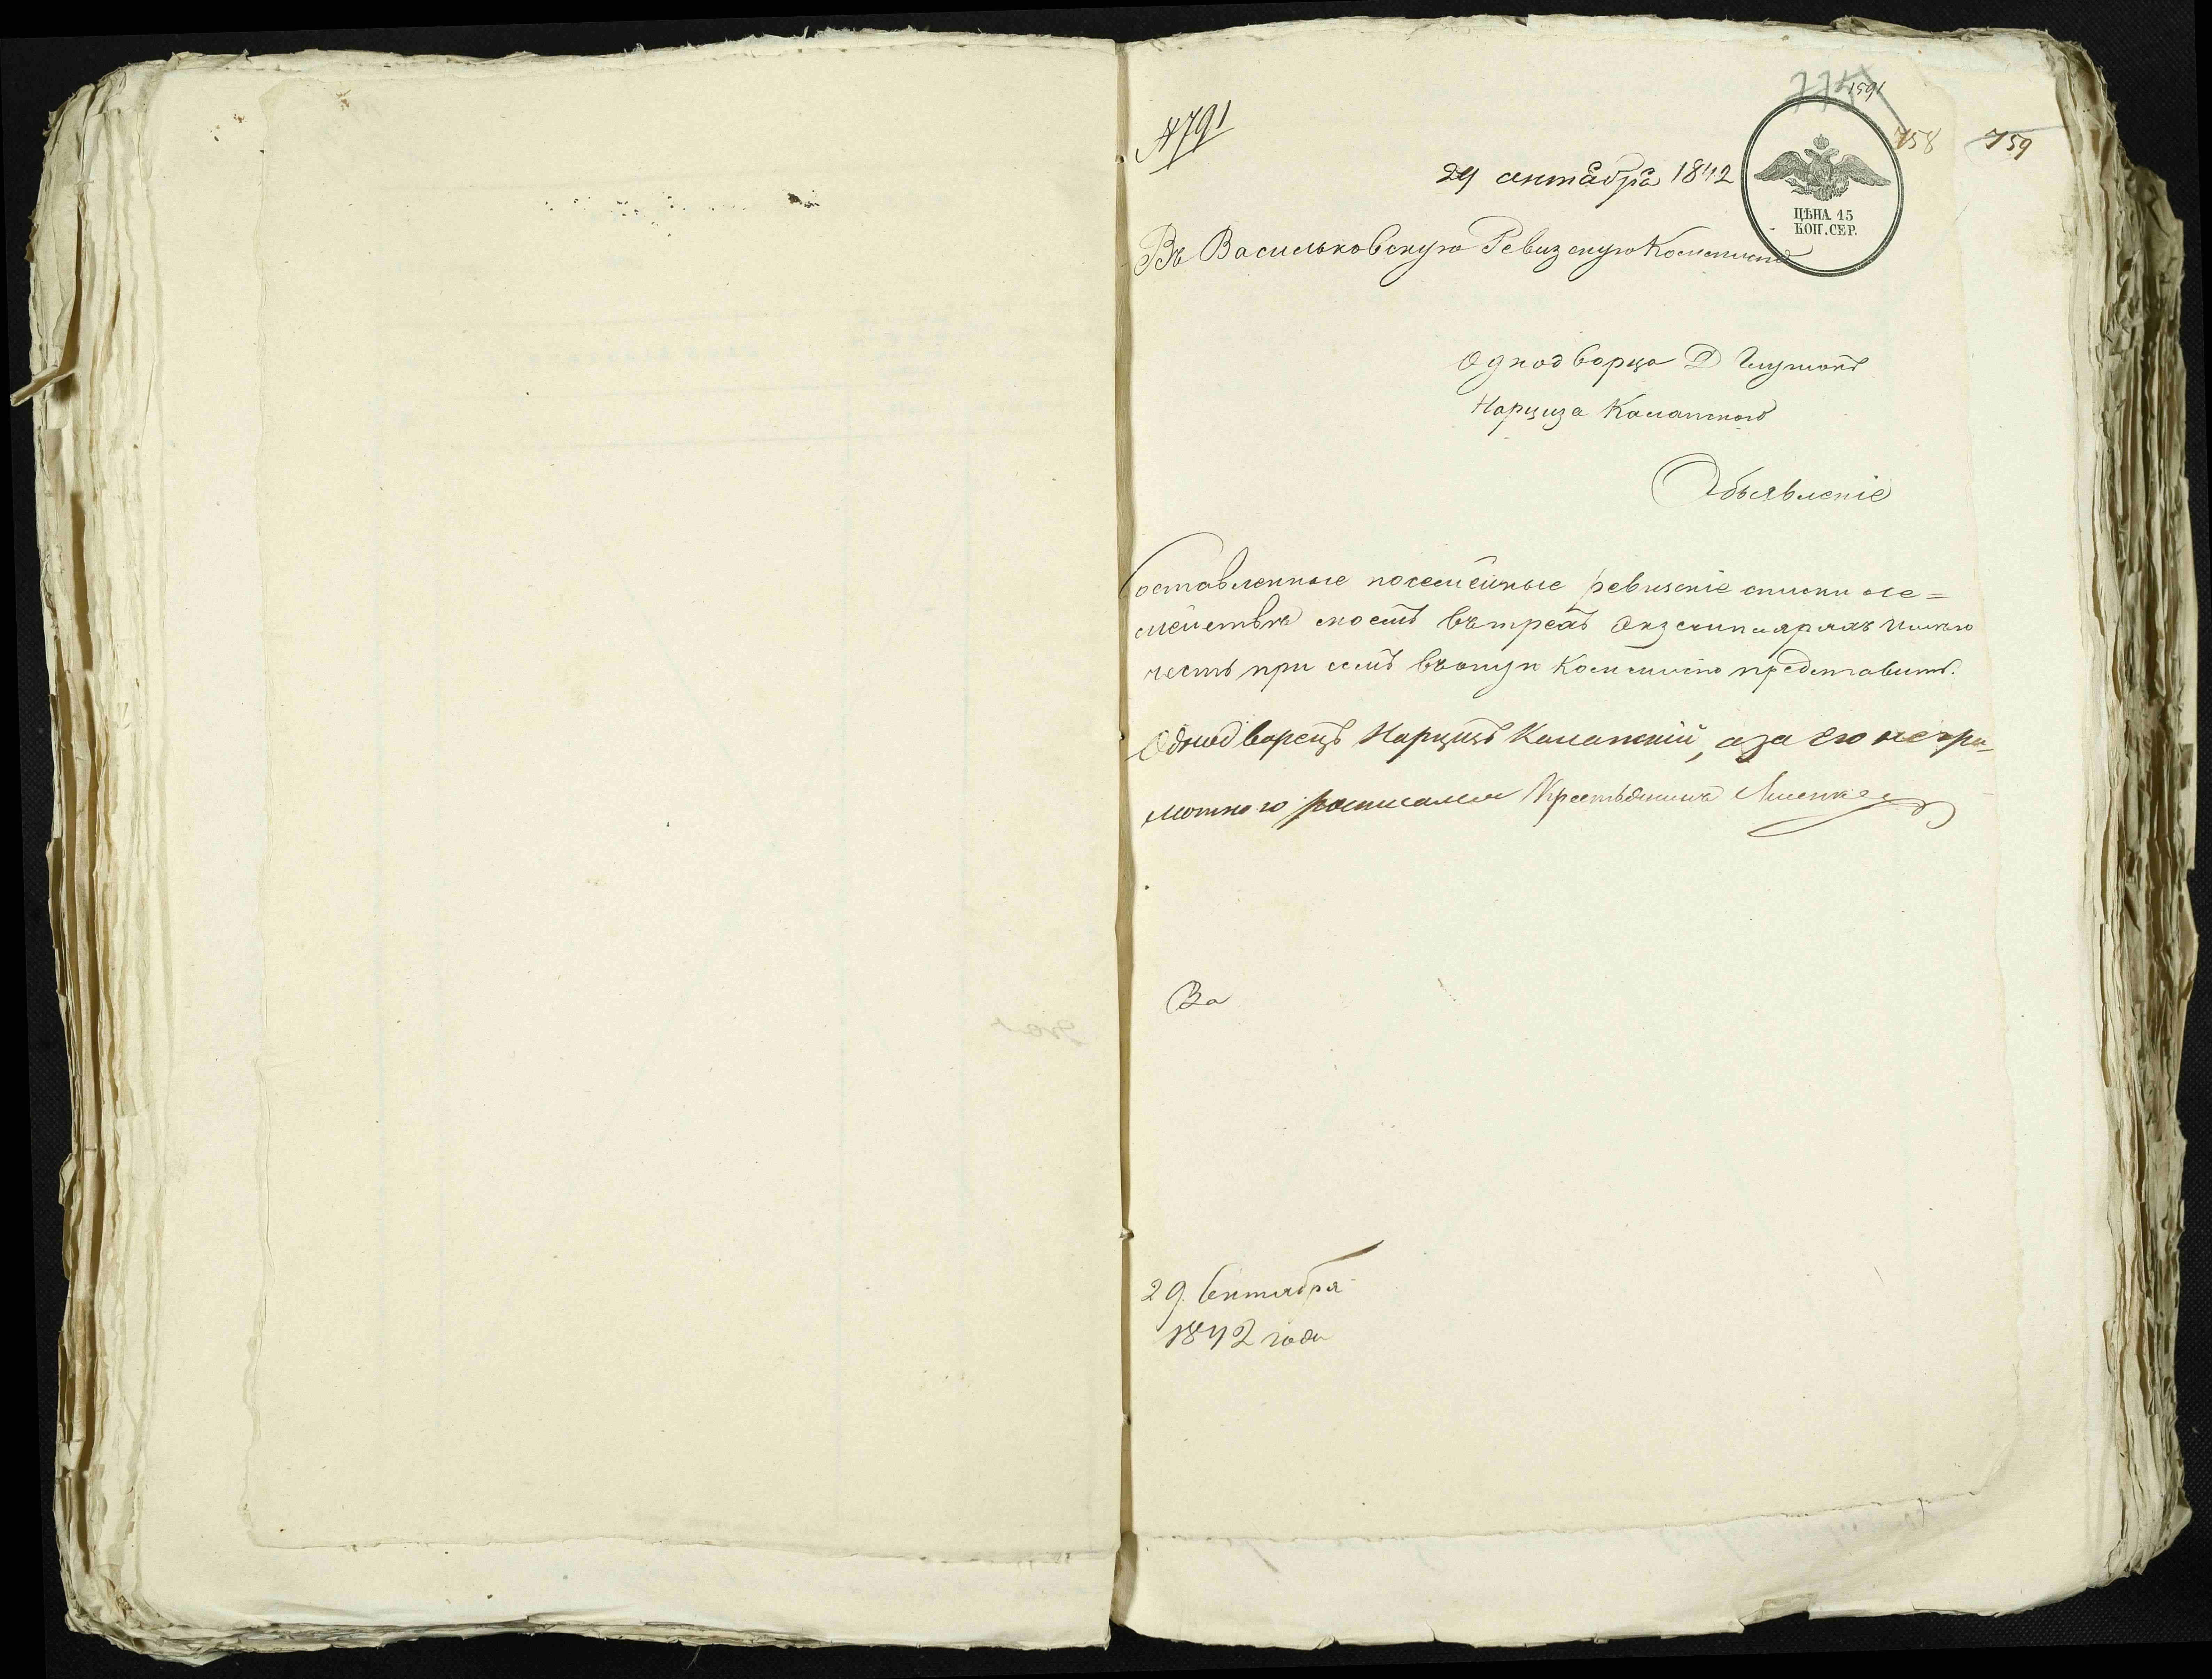 №791
1591
774
758 759
29 сентября 1842
ЦѢНА 15
КОП. СЕР.
Въ Васильковскую Ревизскую Коммисію
Однодворца Д Глушокъ
Нарциза Каманского
Объявленіе
Составленные посемейные ревизскіе списки о се=
мействѣ моемъ въ трехъ экземплярахъ имѣю
честь при семъ въ оную Коммисію представить.
Однодворецъ Нарцизъ Каманскій, а за его негра-
мотного росписался Крестьянинъ
За
29 Сентября
1842 года